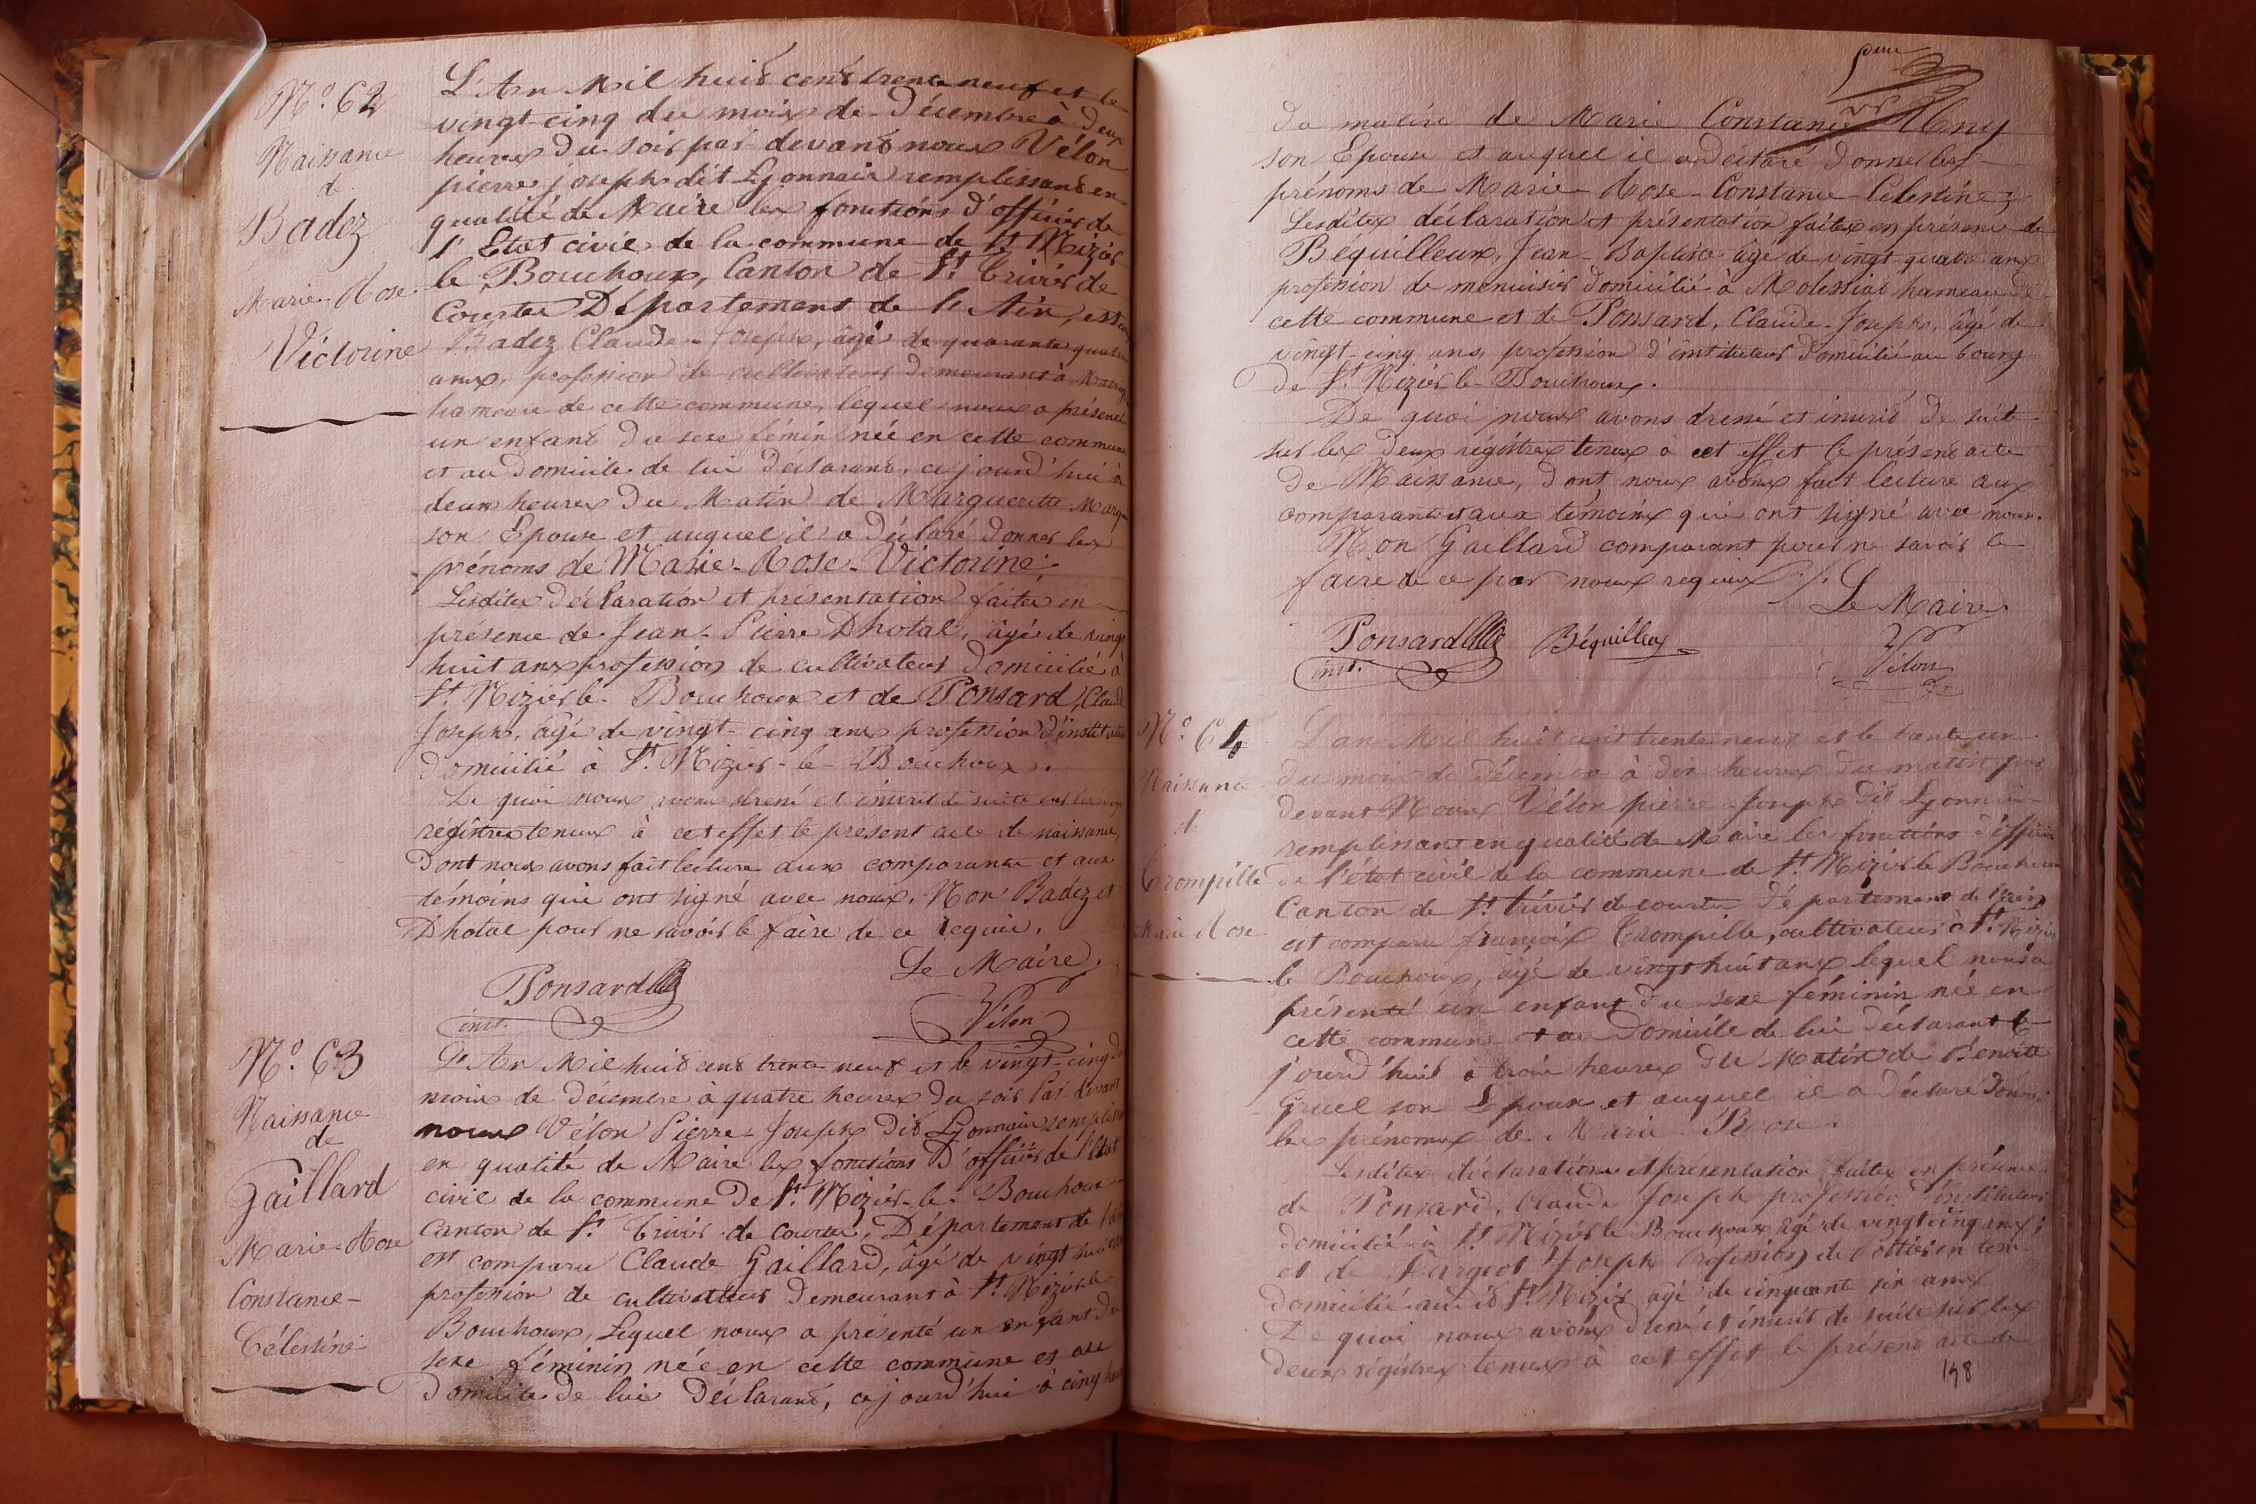 N.º 62
Naissance
de
Badez
Marie-Rose
Victorine
L'An Mil huit cent trente neuf et le
vingt-cinq du mois de Décembre à deux
heures du soir par devant nous Vélon
pierre joseph dit Lyonnais remplissant en
qualité de Maire les fonctions d'officier de
l'Etat civil de la commune de St Nizier
le Bouchoux, Canton de St Trivier de
Courtes Département de l'Ain, est
Badez Claude-Joseph, âgé de quarante quatre
ans, profession de cultivateur demeurant à
hameau de cette commune, lequel nous a présenté
un enfant du sexe fémin née en cette commune
et au domicile de lui déclarant, cejourd'hui à
deux heures du Matin de Marguerite
son Epouse et auquel il a déclaré donner les
prénoms de Marie-Rose-Victorine;
Lesdites déclaration et présentation faites en
présence de Jean-Pierre Dhotal, âgé de vingt
huit ans profession de cultivateur domicilié à
St. Nizier le-Bouchoux et de Ponsard, Claude
Joseph, âgé de vingt-cinq ans profession d'instituteur
domicilié à St. Nizier-le-Bouchoux.
De quoi nous avons dressé et inscrit de suite sur les
régistres tenus à cet effet le présent acte de naissance,
Dont nous avons fait lecture aux comparants et aux
témoins qui ont signé avec nous. Non Badez et
Dhotal pour ne savoir le faire de ce requis.
Le Maire.
Ponsard
inst.
Vélon
N.º 63
Naissance
de
Gaillard
Marie-Rose
Constance-
Célestine
L'An Mil huit cent trente neuf et le vingt-cinq du
mois de décembre à quatre heures du soir Par devant
nous Vélon Pierre-Joseph Dit Lyonnais remplissant
en qualité de Maire les fonctions D'officier de l'Etat
civil de la commune De St. Nizier-le-Bouchoux
Canton de St Trivier de Courtes, Département de l'ain
est comparu Claude Gaillard, âgé de vingt huit ans
profession de cultivateur demeurant à St. Nizier le
Bouchoux, Lequel nous a présenté un enfant du
sexe féminin née en cette commune et au
domicile de lui Déclarant, cejourd'hui à cinq heures
du matin de Marie Constance
son Epouse et auquel il a déclaré donner les
prénoms de Marie-Rose-Constance-Célestine
Lesdites déclaration et présentation faites en présence de
Béquilleux, Jean-Baptiste âgé de vingt quatre ans
profession de menuisier domicilié à Molessiat hameau de
cette commune et de Ponsard, Claude-Joseph, âgé de
vingt-cinq ans, profession d'instituteur domicilié au bourg
de St Nizier le-Bouchoux.
De quoi nous avons dressé et inscrit de suite
sur les deux régistres tenus à cet effet le présent acte
de Naissance, dont nous avons fait lecture aux
comparants et aux témoins qui ont signé avec nous.
Non Gaillard comparant pour ne savoir le
faire de ce par nous requis ./.
Le Maire.
Ponsard
inst.
Béquilleux
Vélon
N.º 64
Naissance
de
Trompille
Marie Rose
L'an Mil huit cent trente neuf et le trente un
du mois de décembre à dix heures du matin par
devant Nous Vélon pierre-Joseph dit Lyonnais
remplissant en qualité de Maire les fonctions d'officier
de l'état civil de la commune de St Nizier le Bouchoux
Canton de St trivier de courtes département de l'ain
est comparu françois Trompille, cultivateur à St. Nizier
le Bouchoux, âgé de vingt huit ans lequel nous a
présenté un enfant du sexe féminin née en
cette commune et au Domicile de lui déclarant ce
jourd'hui à trois heures du Matin de Benoîte
Gruel son Epouse et auquel il a déclaré donner
les prénoms de Marie-Rose.
Lesdites déclarations et présentation faites en présence
de Ponsard, Claude Joseph profession d'instituteur
domicilié à St Nizier le Bouchoux âgé de vingt cinq ans;
et de Joseph Profession de Pottier en terre
domicilié audit St. Nizier âgé de cinquante six ans
De quoi nous avons dressé et inscrit de suite sur les
deux régistres tenus à cet effet le présent acte de
198